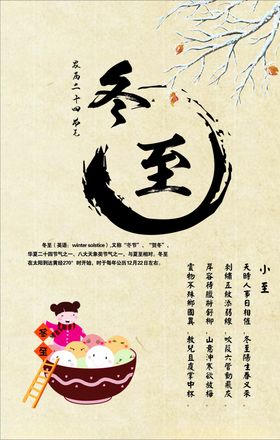 农历二十四节气
冬至
冬至（英语：winter solstice）,又称“冬节”、“贺冬”、
华夏二十四节气之一、八大天象类节气之一，与夏至相对。冬至
在太阳到达黄经270°时开始，时于每年公历12月22日左右。
小至
天時人事日相催 冬至陽生春又来
刺繡五紋添弱線 吹葭六管動飛灰
岸容待臘將舒柳 山意沖寒欲放梅
雲物不殊鄉國異 教兒且覆掌中杯
冬至